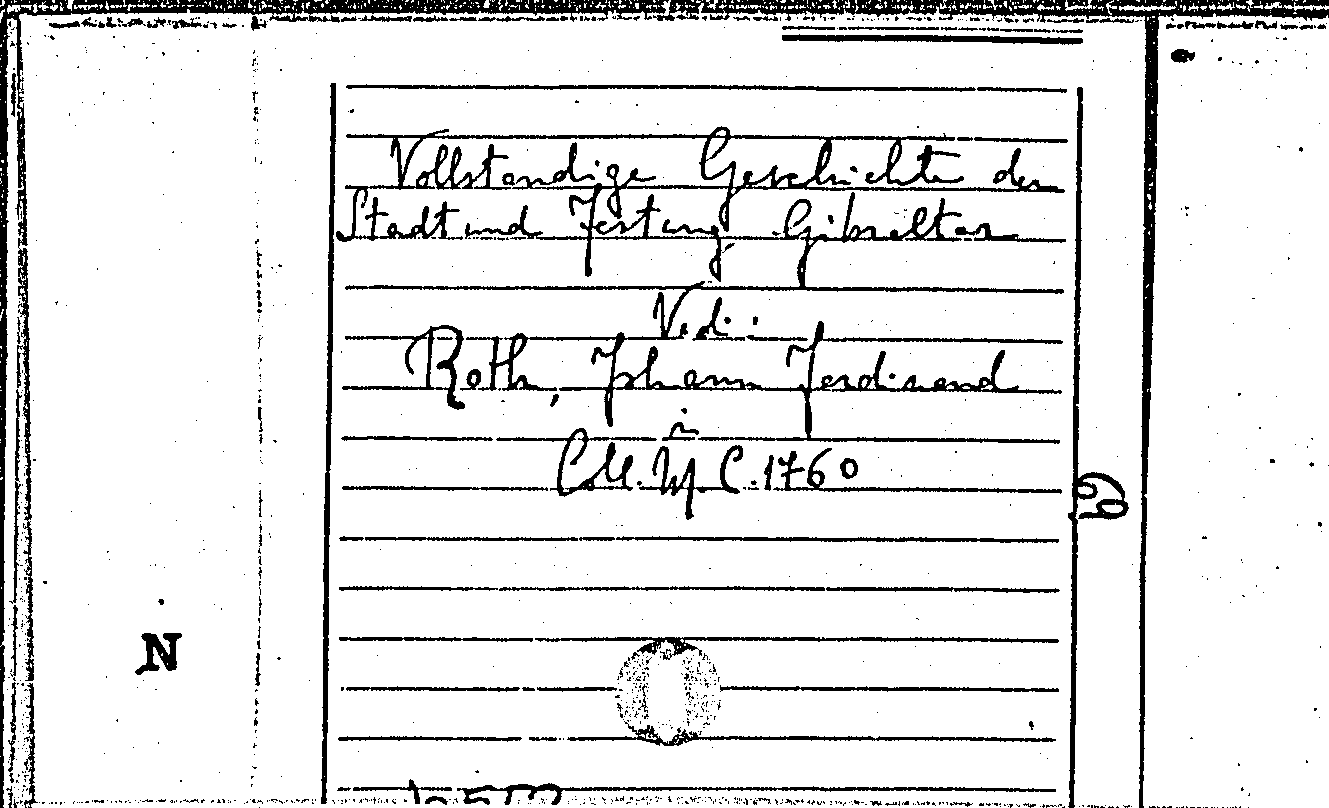 Vollstandige Geschichte der
Stadt und Festung Gibraltar
Vedi:
Roth, Johann Ferdinand
in
Coll. M. C. 1760
N